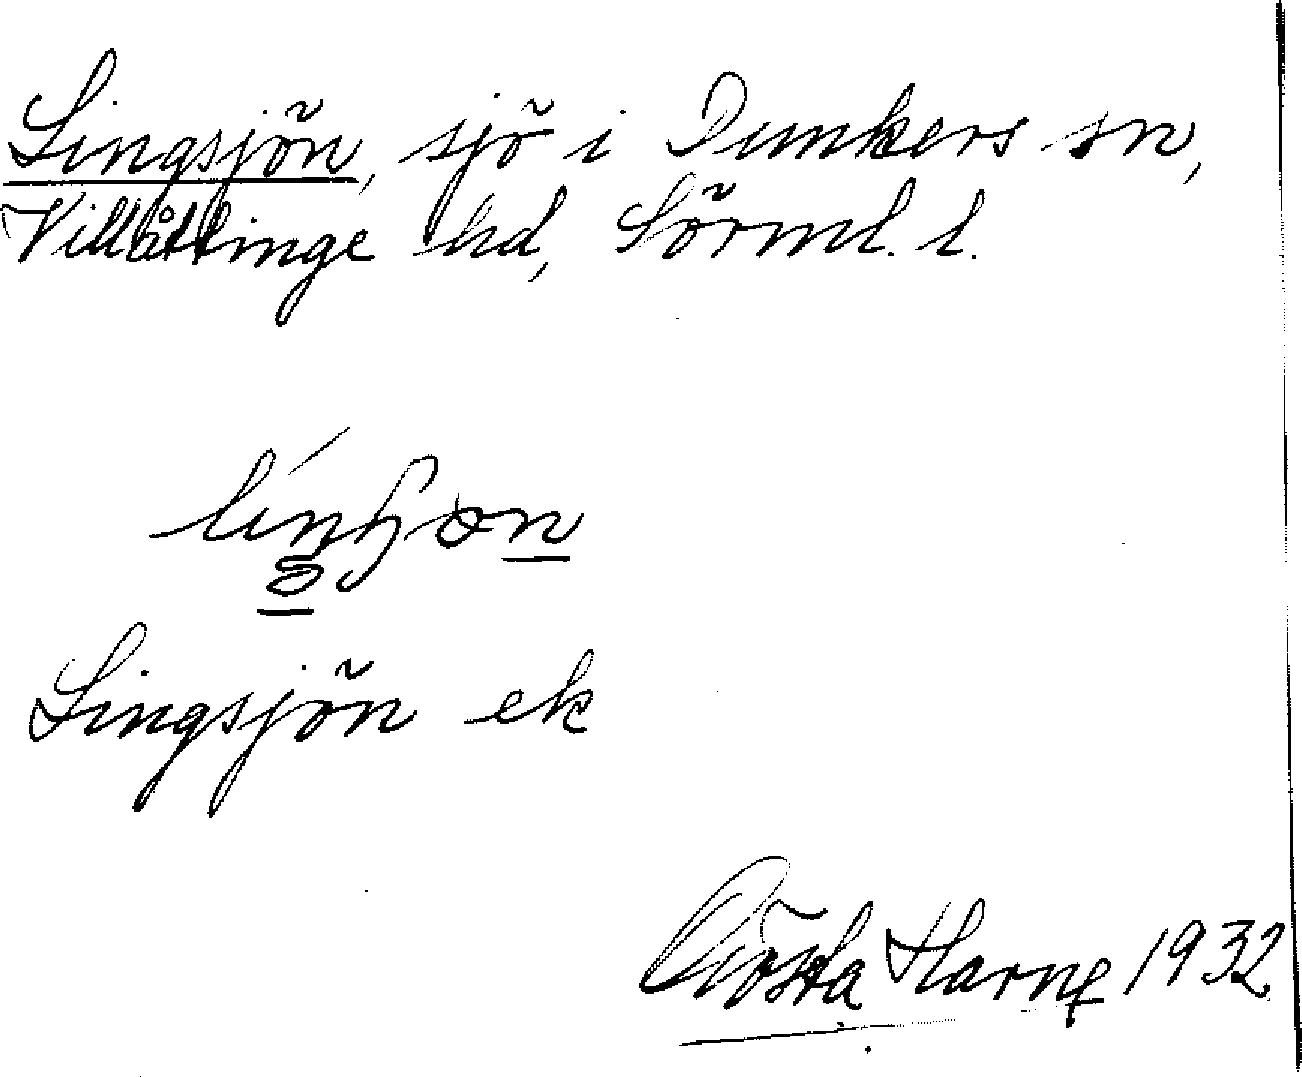 Lingsjön, sjö i Dunkers sn,
Villåttinge hd, Sörml. l.
Lingsjön ek
Gösta Harne 1932